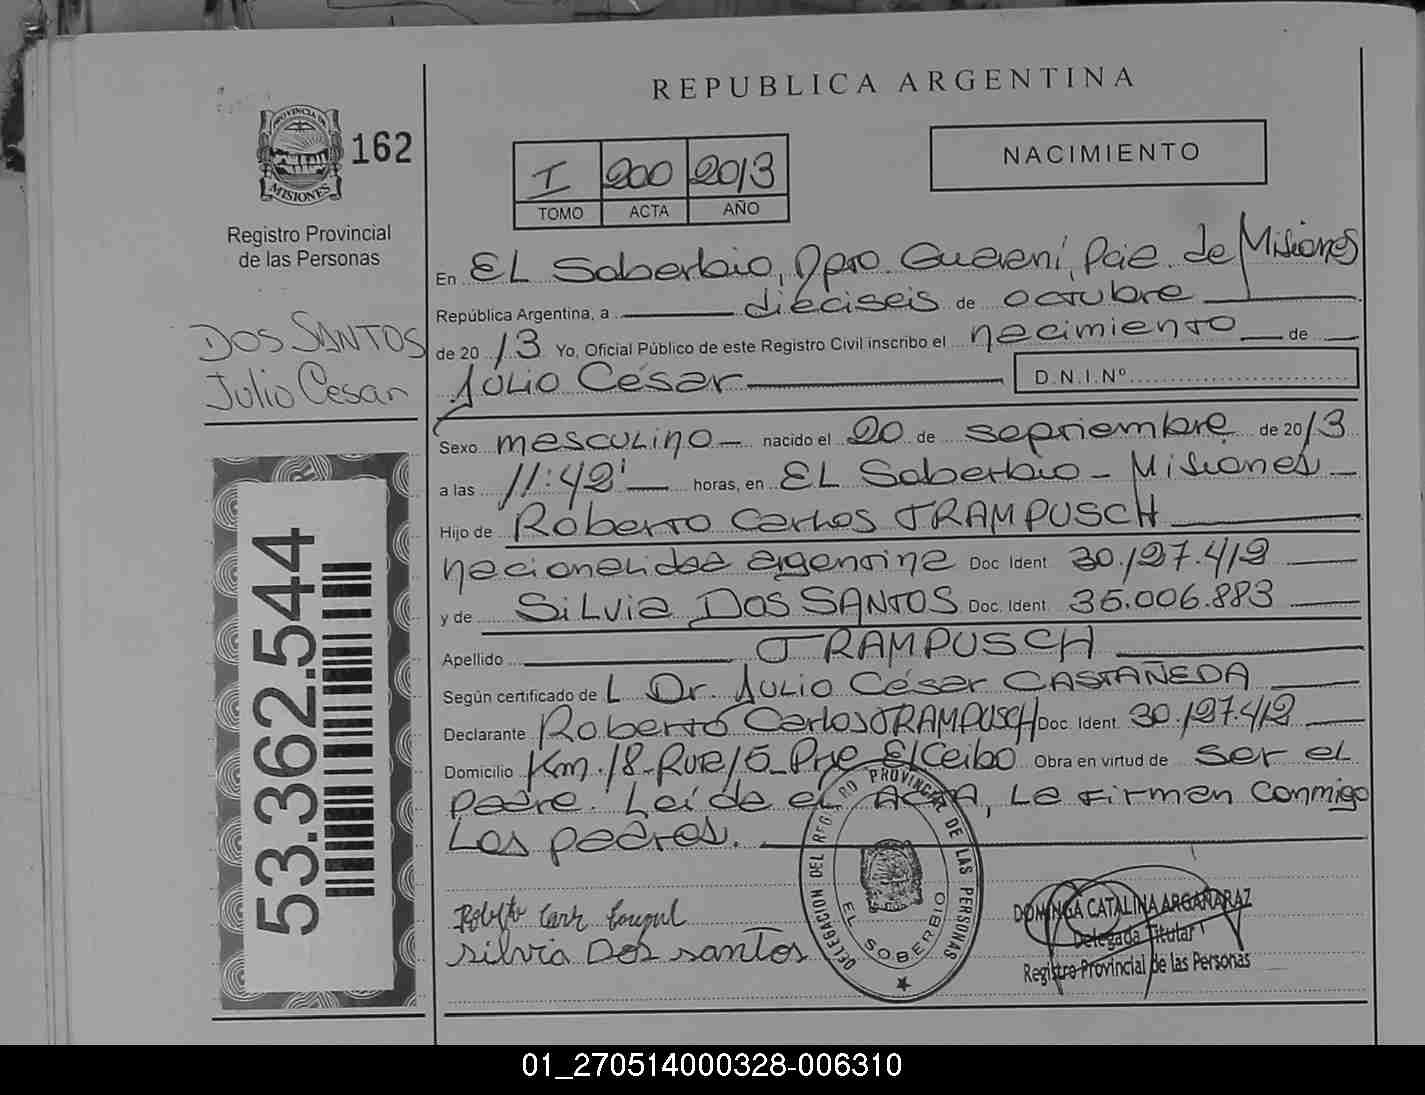 REPUBLICA ARGENTINA
PROVINCIA DE
MISIONES
162
Registro Provincial
de las Personas
I 200 2013
TOMO ACTA AÑO
NACIMIENTO
DOS SANTOS
Julio Cesar
53.362.544
En EL Soberbio, Dpto. Guaraní, Pcia. de Misiones
República Argentina, a dieciseis de octubre
de 2013 Yo, Oficial Público de este Registro Civil inscribo el nacimiento de
Julio César D.N.I.Nº
Sexo masculino nacido el 20 de septiembre de 2013
a las 11:42' horas, en EL Soberbio - Misiones
Hijo de Roberto Carlos TRAMPUSCH
nacionalidad argentina Doc. Ident. 30.197.419
y de Silvia DOS SANTOS Doc. Ident. 35.006.883
Apellido TRAMPUSCH
Según certificado de L Dr. Julio César CASTAÑEDA
Declarante Roberto Carlos TRAMPUSCH Doc. Ident. 30.197.419
Domicilio Km. 18 - Ruta 15 - Pje El Ceibo Obra en virtud de ser el
padre. Leída el ACTA, la firman conmigo
los padres.
Silvia Dos santos
DELEGACION DEL REGISTRO PROVINCIAL DE LAS PERSONAS
EL SOBERBIO
DOMINGA CATALINA ARGAÑARAZ
Delegada Titular
Registro Provincial de las Personas
01_270514000328-006310